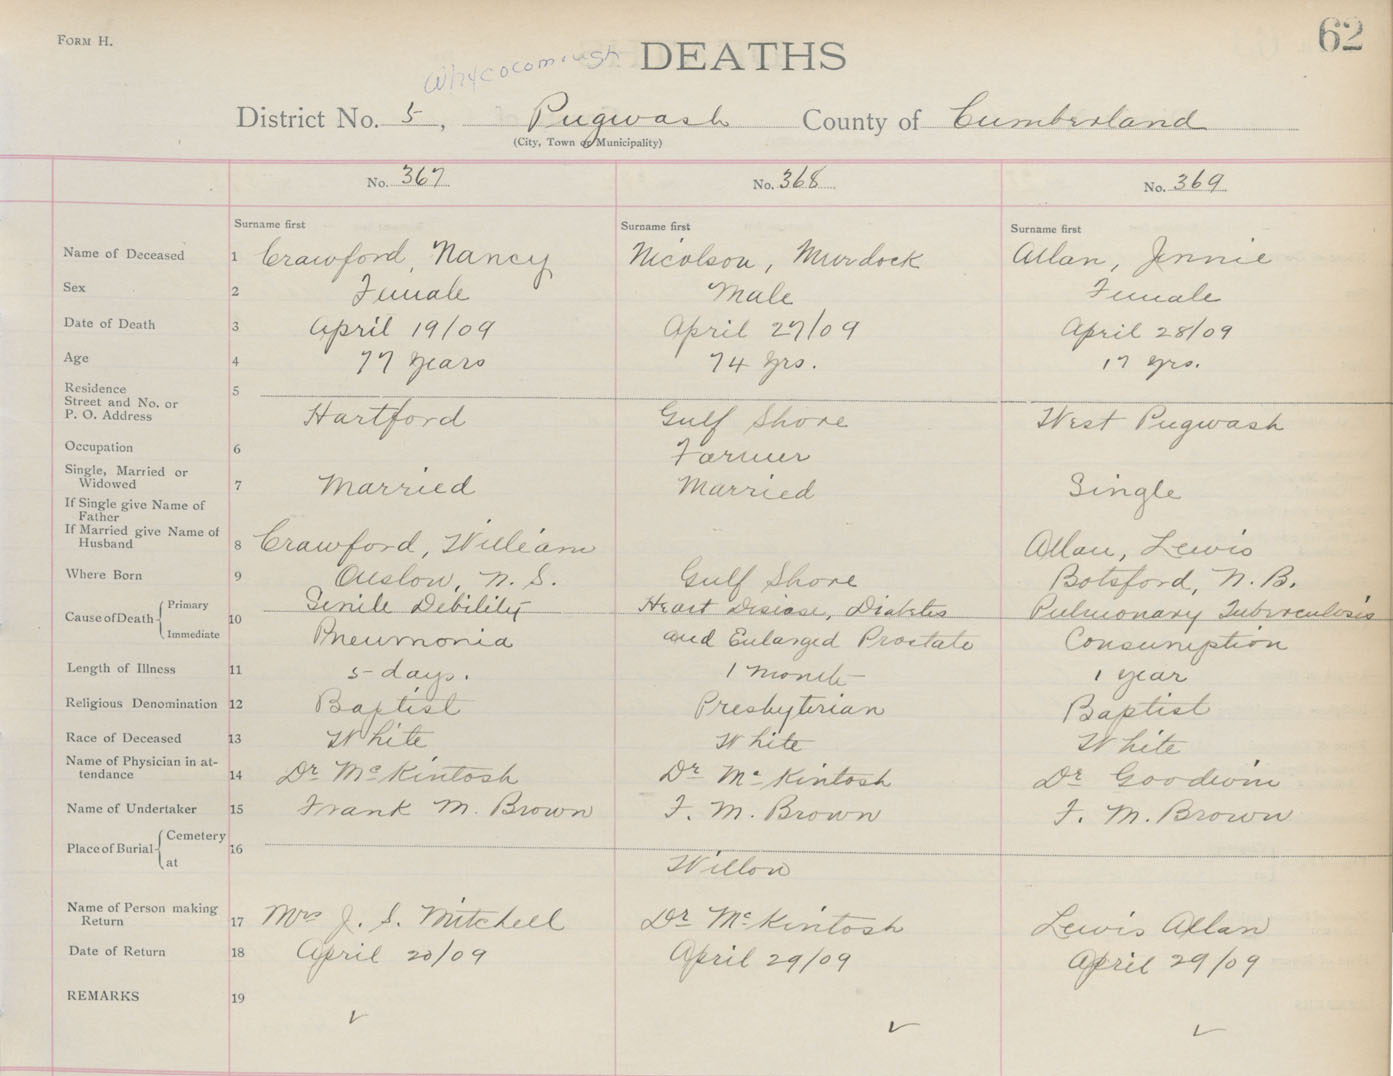 FORM H.
62
Whycocomaugh
DEATHS
District No. 5, Pugwash County of Cumberland
(City, Town or Municipality)
No. 367 No. 368 No. 369
Surname first Surname first Surname first
Name of Deceased 1 Crawford, Nancy Nicolson, Murdock Allan, Jennie
Sex 2 Female Male Female
Date of Death 3 April 19/09 April 27/09 April 28/09
Age 4 77 years 74 yrs. 17 yrs.
Residence 5
Street and No. or
P. O. Address Hartford Gulf Shore West Pugwash
Occupation 6 Farmer
Single, Married or
Widowed 7 Married Married Single
If Single give Name of
Father
If Married give Name of
Husband 8 Crawford, William Allan, Lewis
Where Born 9 Onslow, N. S. Gulf Shore Botsford, N. B.
Cause of Death 10 Primary Senile Debility Heart Disease, Diabetes Pulmonary Tuberculosis
Immediate Pneumonia and Enlarged Prostate Consumption
Length of Illness 11 5 days. 1 month 1 year
Religious Denomination 12 Baptist Presbyterian Baptist
Race of Deceased 13 White White White
Name of Physician in at-
tendance 14 Dr McKintosh Dr McKintosh Dr Goodwin
Name of Undertaker 15 Frank M. Brown F. M. Brown F. M. Brown
Place of Burial 16 Cemetery
at Willow
Name of Person making
Return 17 Mrs J. S. Mitchell Dr McKintosh Lewis Allan
Date of Return 18 April 20/09 April 29/09 April 29/09
REMARKS 19